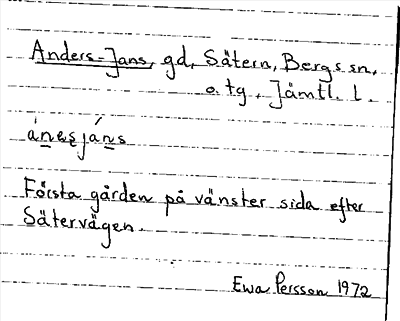 Anders-Jans, gd, Sätern, Bergs sn,
o. tg, Jämtl. l.
ánesjáns
Första gården på vänster sida efter
Sätervägen.
Ewa Persson 1972